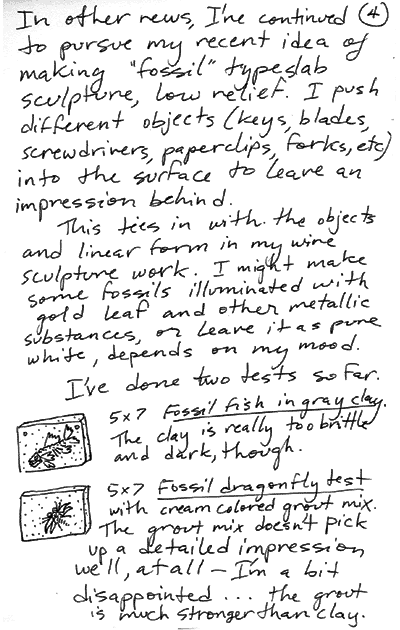 In other news, I've continued ④
to pursue my recent idea of
making "fossil" type slab
sculpture, low relief. I push
different objects (keys, blades,
screwdrivers, paperclips, forks, etc)
into the surface to leave an
impression behind.
This ties in with the objects
and linear form in my wire
sculpture work. I might make
some fossils illuminated with
gold leaf and other metallic
substances, or leave it as pure
white, depends on my mood.
I've done two tests so far.
5x7 Fossil fish in gray clay.
The clay is really too brittle
and dark, though.
5x7 Fossil dragonfly test
with cream colored grout mix.
The grout mix doesn't pick
up a detailed impression
we'll, at all – I'm a bit
disappointed ... the grout
is much stronger than clay.